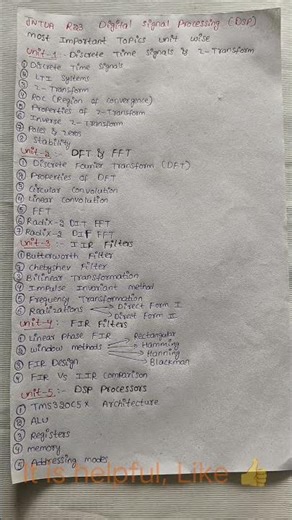 JNTUA R23 Digital Signal Processing (DSP)
most Important Topics unit wise
Unit-1 :- Discrete Time signals & Z-Transform
① Discrete Time signals
② LTI Systems
③ Z-Transform
④ ROC (Region of convergence)
⑤ Properties of Z-Transform
⑥ Inverse Z-Transform
⑦ Poles & Zeros
⑧ Stability
Unit-2 :- DFT & FFT
① Discrete Fourier Transform (DFT)
② Properties of DFT
③ Circular Convolution
④ Linear Convolution
⑤ FFT
⑥ Radix-2 DIT FFT
⑦ Radix-2 DIF FFT
Unit-3 :- IIR Filters
① Butterworth Filter
② Chebyshev Filter
③ Bilinear Transformation
④ Impulse Invariant method
⑤ Frequency Transformation
⑥ Realisations → Direct Form I
→ Direct Form II
Unit-4 :- FIR Filters
① Linear Phase FIR → Rectangular
② Window methods → Hamming
→ Hanning
③ FIR Design → Blackman
④ FIR Vs IIR Comparison
Unit-5 :- DSP Processors
① TMS320C5X Architecture
② ALU
③ Registers
④ memory
⑤ Addressing modes
It is helpful, Like 👍